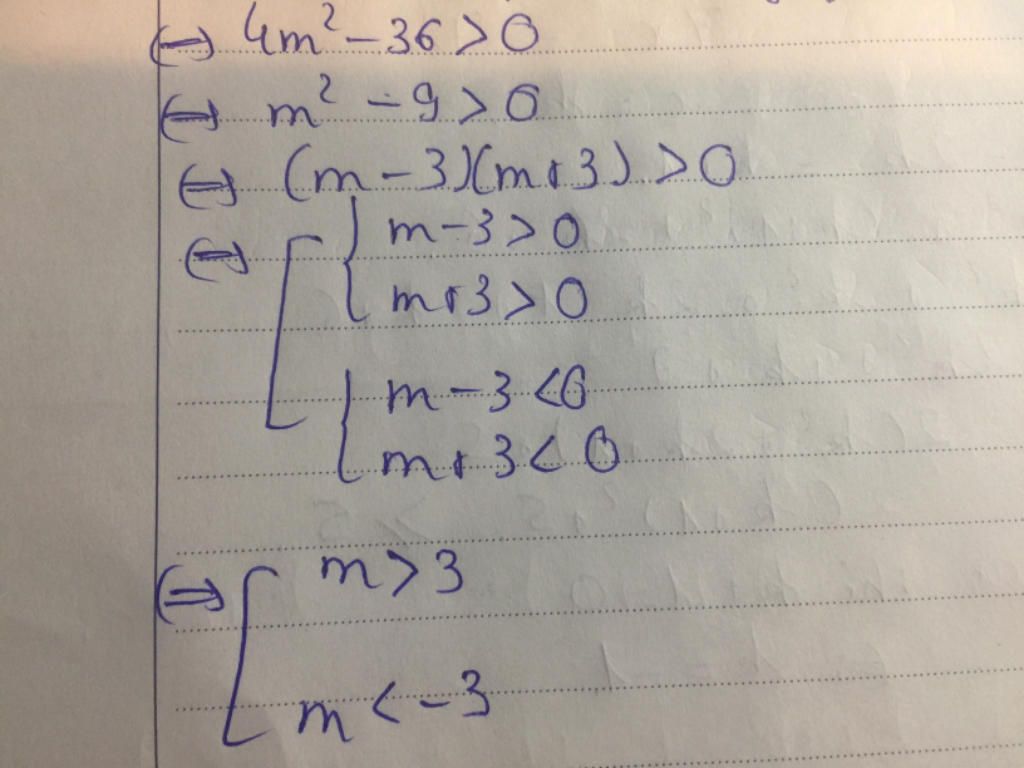 ⇔ 4m² - 36 > 0
⇔ m² - 9 > 0
⇔ (m - 3)(m + 3) > 0
⇔ [ { m - 3 > 0
m + 3 > 0
{ m - 3 < 0
m + 3 < 0
⇔ [ m > 3
m < -3